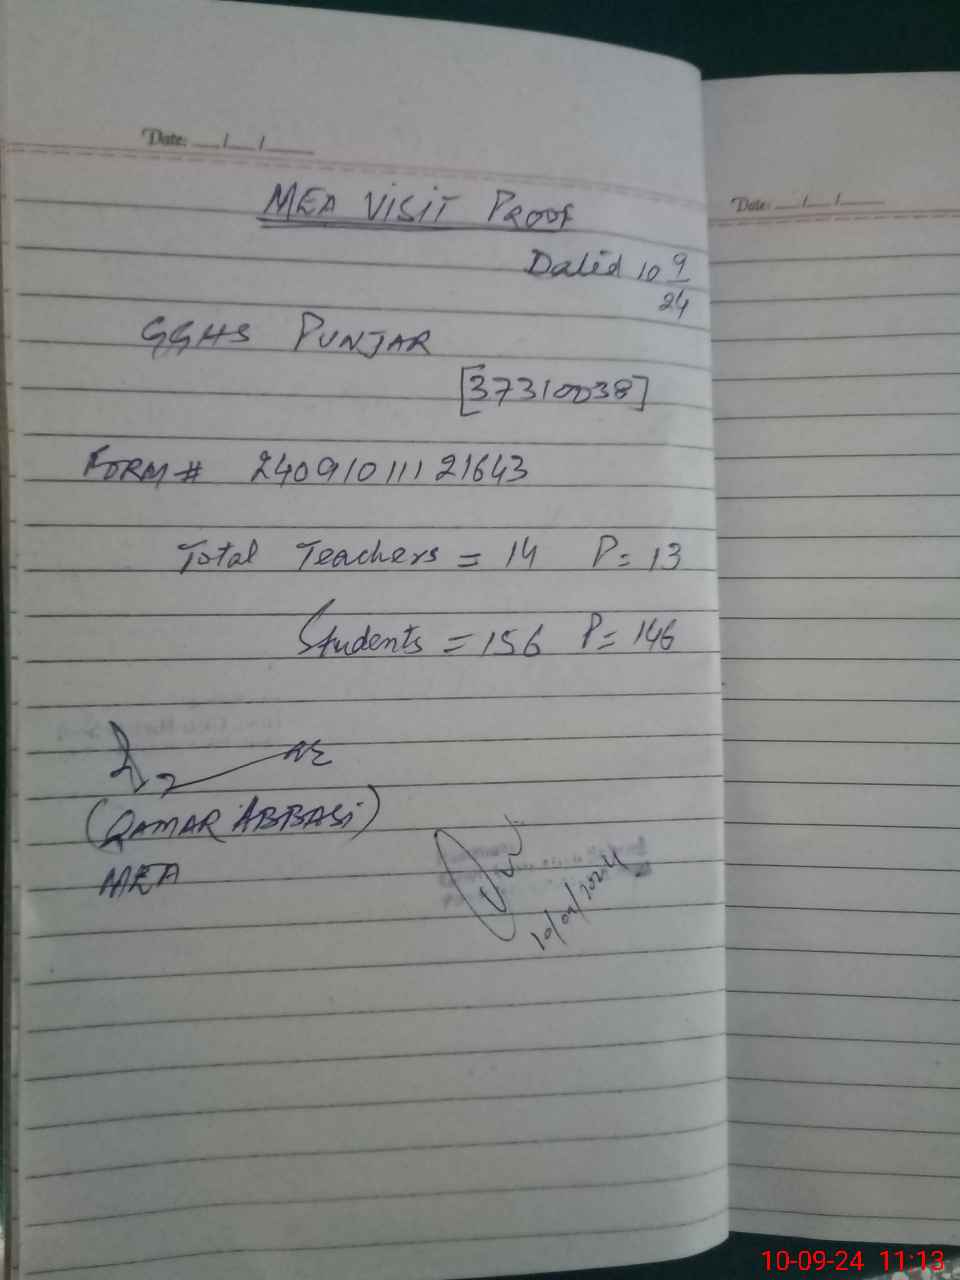 Date: __/__/____
MEA VISIT PROOF
Date: __/__/____
Dated 10 9/24
GGHS PUNJAR
[37310038]
FORM # 24091011121643
Total Teachers = 14 P= 13
Students = 156 P= 146
(QAMAR ABBASI)
MEA
10/09/2024
10-09-24 11:13